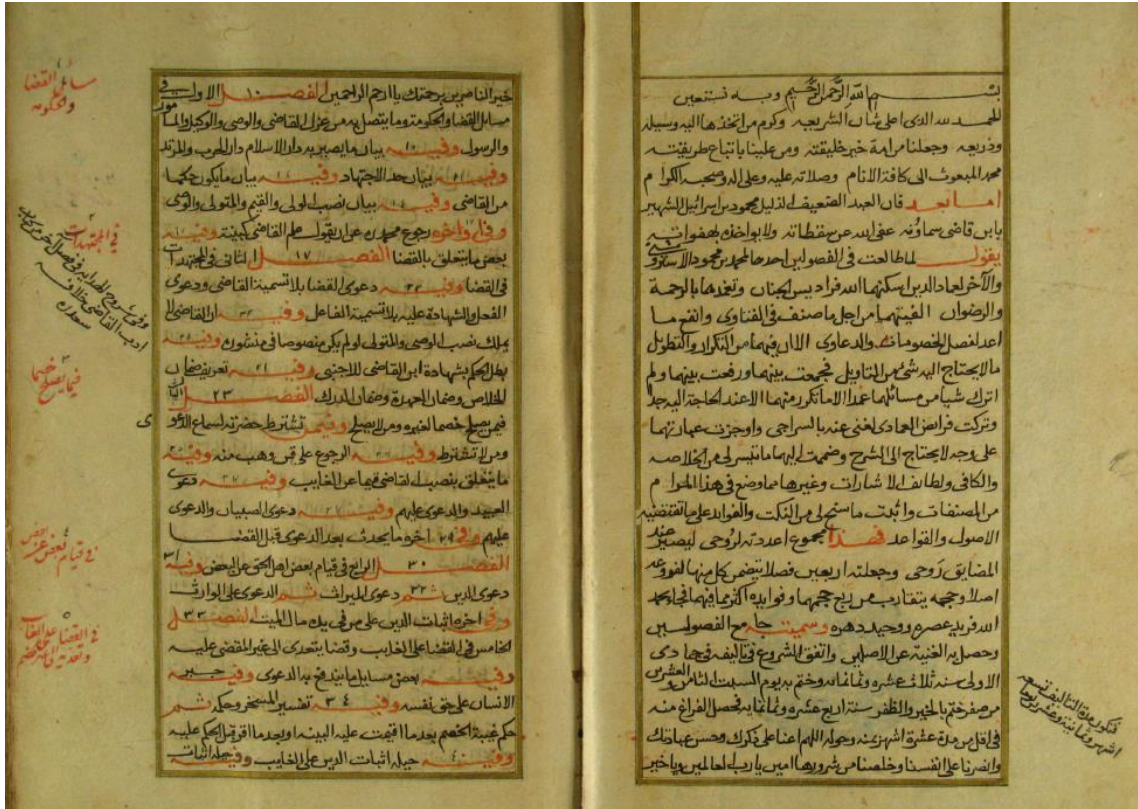 بسم الله الرحمن الرحيم وبه نستعين
الحمد لله الذي اعلى شان الشريعه وكرم من اتخذها اليه وسيله
وذريعه وجعلنا من امة خير خليقته ومن علينا باتباع طريقته
محمد المبعوث الى كافة الانام وصلاته عليه وعلى اله وصحبه الكرام
اما بعد فان العبد الضعيف الذليل محمود بن اسرائيل الشهير
بابن قاضي سماونه عفى الله عن سقطاته ولا يواخذه بهفواته
يقول لما طالعت في الفصولين احدها لمحمد بن محمود الاستروشني
والآخر لعماد الدين اسكنهما الله فراديس الجنان وتغمدها بالرحمة
والرضوان الفيتهما من اجل ما صنف في الفتاوى وانفع ما
اعد لفصل الخصومات والدعاوى الا ان فيهما من التكرار والتطويل
مالا يحتاج اليه شئ من التاويل فجمعت بينهما ورفعت بينهما ولم
اترك شيا من مسائلهما عمدا الا ما تكرر منهما الا عند الحاجة اليه جدا
وتركت فرائض العمادى لغنى عنه بالسراجى واوجزت عباراتهما
على وجه لا يحتاج الى الشرح وضممت اليهما ما تيسر لى من الخلاصه
والكافى ولطائف الاشارات وغيرها مما وضع في هذا المرام
من المصنفات واثبت ما سنح لى من النكت والفوائد على ما تقتضيه
الاصول والقواعد فهذا مجموع اعددته لروحى ليصير عند
المضايق روحى وجعلته اربعين فصلا يتضمن كل منها لفوو عد
اصلا وحجمه يتقارب من ربع حجمها وفوايده اكثر مما فيهما فجاء بحمد
الله فريد عصره ووحيد دهره وسميته جامع الفصولين
وحصل به الغنية عن الاصلين واتفق الشروع في تاليفه في جمادى
الاولى سنه ثلاث عشره وثمانمائه وختم به يوم السبت الثامن والعشرين
من صفر ختم بالخير والظفر سنة اربع عشره وثمانمايه فحصل الفراغ منه
في اقل من مدة عشرة اشهر بمنه وحوله اللهم اعنا على ذكرك وحسن عبادتك
وانصرنا على انفسنا وخلصنا من شرورها امين يا رب العالمين ويا خير
فتكون مدة التاليف تسعه
اشهر وثمانية وعشرين يوما
خير الناصرين برحمتك يا ارحم الراحمين الفصل ١٠ الاول في
مسائل القضا والحكومة وما يتصل به من عزل القاضى والوصى والوكيل والمامور
والرسول وفيه ١٠ بيان ما يصير به دار الاسلام دار الحرب والمرتد
وفيه بيان حد الاجتهاد وفيه بيان ما يكون حكما
من القاضى وفيه بيان نصب الولى والقيم والمتولى والوصى
وفى اواخره رجوع محمد ره عن ان يقول علم القاضى كبينة وفيه
بعض ما يتعلق بالقضا الفصل ١٧ الثانى في المجتهدات
في القضا وفيه ٢٢ دعوى القضا بلا تسمية القاضى ودعوى
الفعل والشهادة عليه بلا تسمية الفاعل وفيه ان القاضى لا
يملك نصب الوصى والمتولى لو لم يكن منصوصا في منشوره وفيه
بطل الحكم بشهادة ابن القاضى للاجنبى وفيه ٢١ تعريف ضمان
الخلاص وضمان العهدة وضمان الدرك الفصل ٢٣ الثالث
فيمن يصلح خصما لغيره ومن لا يصلح وفيمن تشترط حضرته لسماع الدعوى
ومن لا تشترط وفيه الرجوع على قن وهب منه وفيه
ما يتعلق بنصب القاضى قيما عن الغايب وفيه ٢٧ دعوى
العبيد والدعوى عليهم وفيه ٢٧ دعوى الصبيان والدعوى
عليهم وفي ٢٩ اخره ما يحدث بعد الدعوى قبل القضا
الفصل ٣٠ الرابع في قيام بعض اهل الحق عن البعض وفيه ٣١
دعوى الدين ثم ٣٢ دعوى الميراث ثم الدعوى على الوارث
وفى اخره اثبات الدين على من في يده مال الميت الفصل ٣٣
الخامس في القضا على الغايب وقضا يتعدى الى غير المقضى عليه
وفيه بعض مسايل ما يندفع به الدعوى وفيه خير
الانسان على حق نفسه وفيه ٣٤ تفسير المسخر وحكمه ثم
حكم غيبة الخصم بعد ما اقيمت عليه البينه وبعد ما اقر قبل الحكم عليه
وفيه ٤٠ حيله اثبات الدين على الغايب وفيه حيله اثبات
مسائل القضا
والحكومه
في المجتهدات
وفي شروح الهدايه في فصل آخر من كتاب
ادب القاضى خلافه
سعدى
فيما يصلح خصما
في قيام بعض عن بعض
في القضا على الغايب